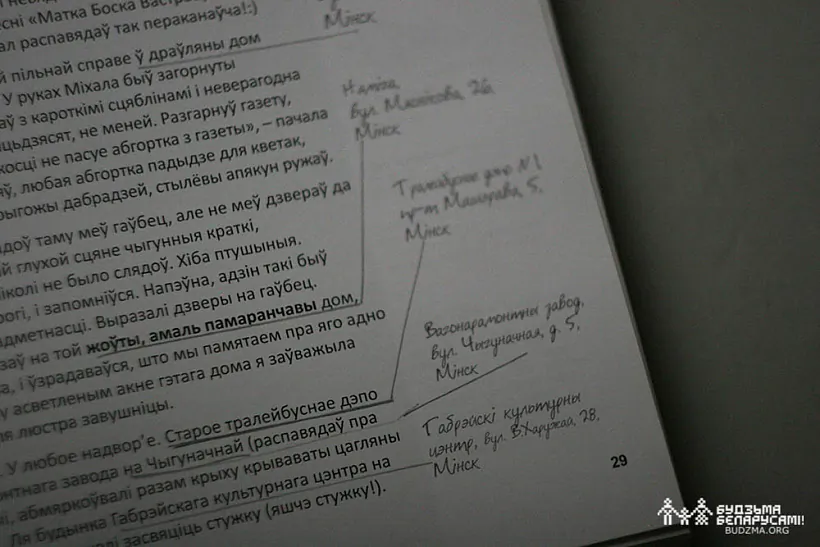 сні «Матка Боска Вастраб
ал распавядаў так пераканаўча!:)
Мінск
й пільнай справе ў драўляны дом
У руках Міхала быў загорнуты
аў з кароткімі сцяблінамі і неверагодна
ьцьдзясят, не меней. Разгарнуў газету,
косці не пасуе абгортка з газеты», – пачала
яў, любая абгортка падыдзе для кветак,
рыгожы дабрадзей, стылёвы апякун ружаў.
Няміга,
вул. Мяснікова, 2а
Мінск
доў таму меў гаўбец, але не меў дзвераў да
й глухой сцяне чыгунныя краткі,
іколі не было слядоў. Хіба птушыныя.
рогі, і запомніўся. Напэўна, адзін такі быў
адметнасці. Выразалі дзверы на гаўбец.
заў на той жоўты, амаль памаранчавы дом,
а, і ўзрадаваўся, што мы памятаем пра яго адно
у асветленым акне гэтага дома я заўважыла
ля люстра завушніцы.
дэпо №1
пр-т Машэрава, 5,
Мінск
У любое надвор'е. Старое тралейбуснае дэпо
онтнага завода на Чыгуначнай (распавядаў пра
і, абмяркоўвалі разам крыху крываваты цагляны
Ля будынка Габрэйскага культурнага цэнтра на
лі засвяціць стужку (яшчэ стужку!).
Вагонарамонтны завод,
вул. Чыгуначная, д. 5,
Мінск
Габрэйскі культурны
цэнтр, вул. В.Харужай, 28,
Мінск
29
БУДЗЬМА
БЕЛАРУСАМІ!
BUDZMA.ORG